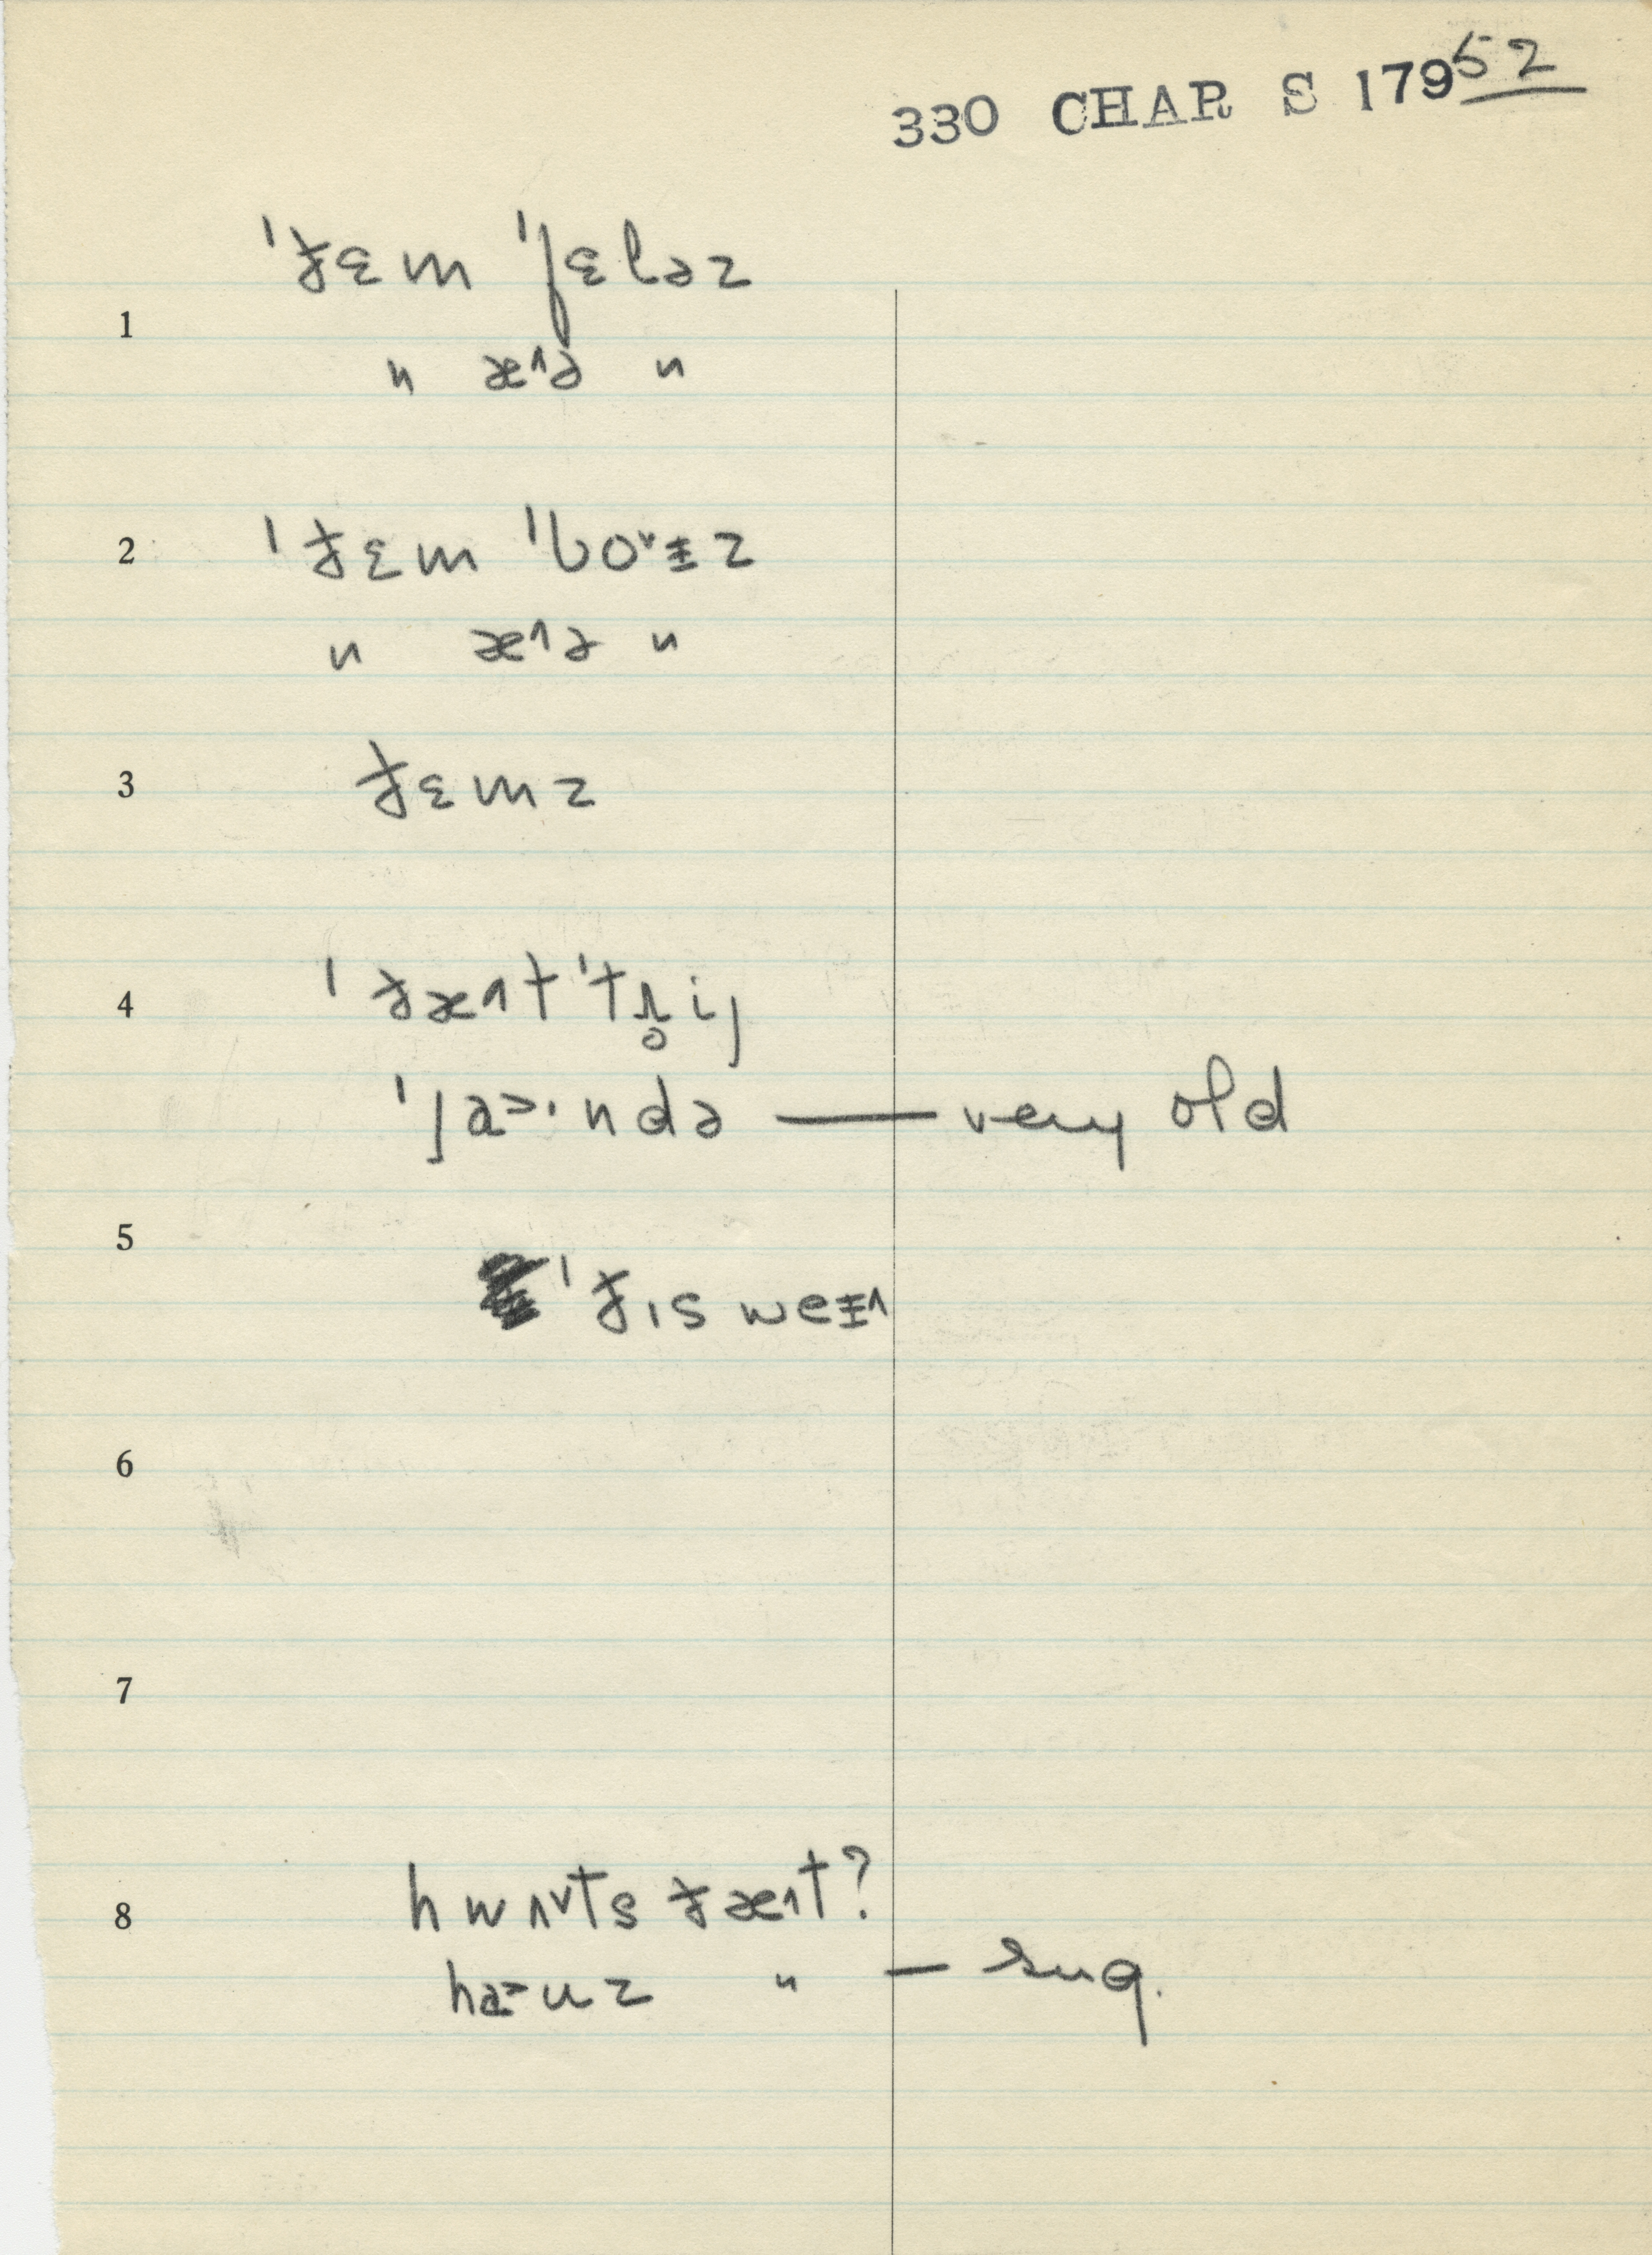 330 CHAR S 179 52
ˈð̵ɛm ˈfɛləz
1
" æ^ə "
2 ˈð̵ɛm ˈbo˅ɨz
" æ^ə "
3 ð̵ɛmz
4 ˈð̵æ^t ˈtɹ̥ij
ˈja>·ndə — very old
5
ˈð̵ɪs weɨ^
6
7
8 hwʌ˅ts ð̵æ^t?
ha>uz " — sug.